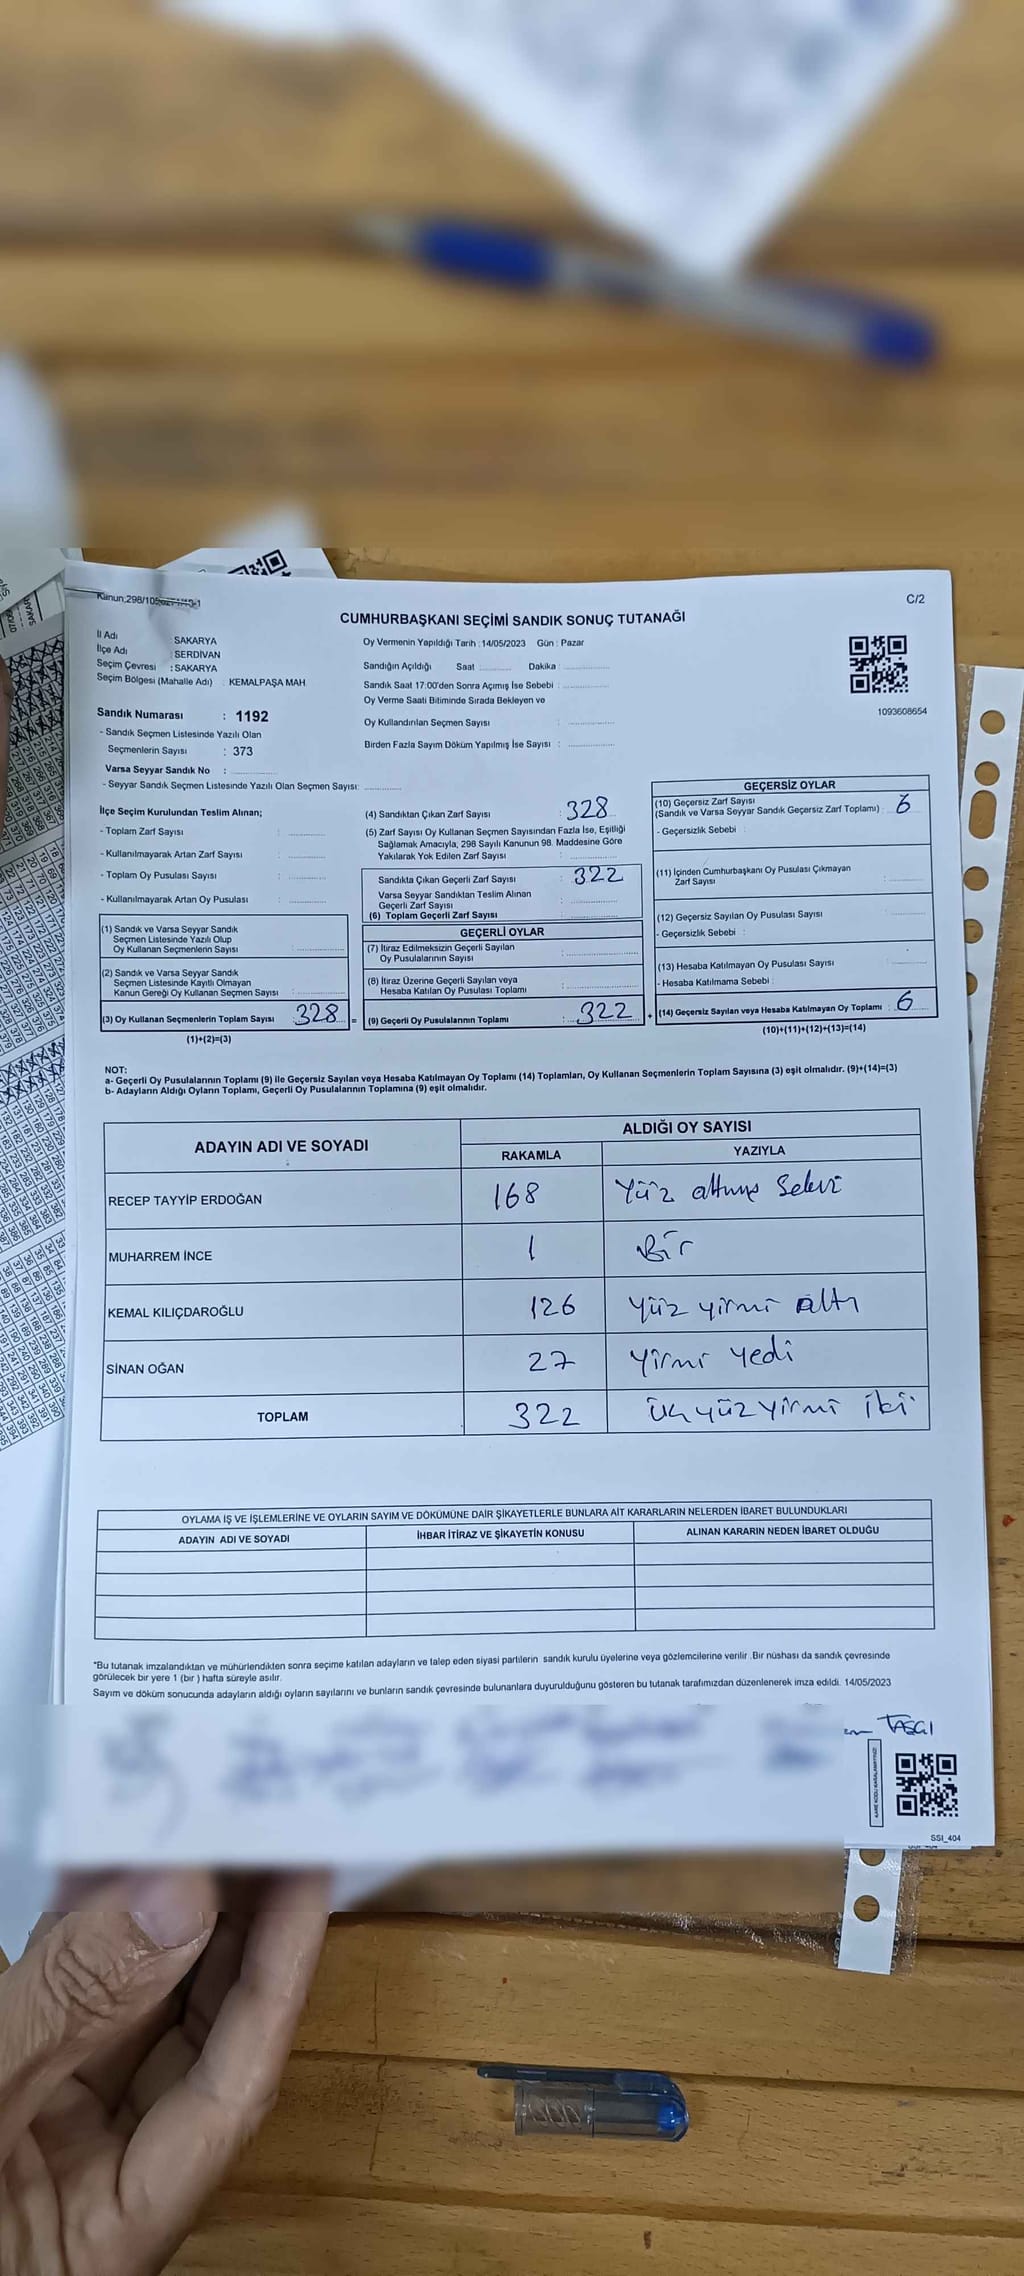 Kanun:298/105
C/2
CUMHURBAŞKANI SEÇİMİ SANDIK SONUÇ TUTANAĞI
İl Adı : SAKARYA
İlçe Adı : SERDİVAN
Seçim Çevresi : SAKARYA
Seçim Bölgesi (Mahalle Adı) : KEMALPAŞA MAH
Sandık Numarası : 1192
- Sandık Seçmen Listesinde Yazılı Olan
Seçmenlerin Sayısı : 373
Varsa Seyyar Sandık No :
- Seyyar Sandık Seçmen Listesinde Yazılı Olan Seçmen Sayısı:
Oy Vermenin Yapıldığı Tarih : 14/05/2023 Gün : Pazar
Sandığın Açıldığı Saat Dakika :
Sandık Saat 17:00'den Sonra Açımış İse Sebebi :
Oy Verme Saati Bitiminde Sırada Bekleyen ve
Oy Kullandırılan Seçmen Sayısı :
Birden Fazla Sayım Döküm Yapılmış İse Sayısı :
1093608654
İlçe Seçim Kurulundan Teslim Alınan;
- Toplam Zarf Sayısı :
- Kullanılmayarak Artan Zarf Sayısı :
- Toplam Oy Pusulası Sayısı :
- Kullanılmayarak Artan Oy Pusulası :
(1) Sandık ve Varsa Seyyar Sandık
Seçmen Listesinde Yazılı Olup
Oy Kullanan Seçmenlerin Sayısı :
(2) Sandık ve Varsa Seyyar Sandık
Seçmen Listesinde Kayıtlı Olmayan
Kanun Gereği Oy Kullanan Seçmen Sayısı :
(3) Oy Kullanan Seçmenlerin Toplam Sayısı 328 =
(1)+(2)=(3)
(4) Sandıktan Çıkan Zarf Sayısı : 328
(5) Zarf Sayısı Oy Kullanan Seçmen Sayısından Fazla İse, Eşitliği
Sağlamak Amacıyla; 298 Sayılı Kanunun 98. Maddesine Göre
Yakılarak Yok Edilen Zarf Sayısı :
Sandıkta Çıkan Geçerli Zarf Sayısı : 322
Varsa Seyyar Sandıktan Teslim Alınan
Geçerli Zarf Sayısı :
(6) Toplam Geçerli Zarf Sayısı :
GEÇERLİ OYLAR
(7) İtiraz Edilmeksizin Geçerli Sayılan
Oy Pusulalarının Sayısı :
(8) İtiraz Üzerine Geçerli Sayılan veya
Hesaba Katılan Oy Pusulası Toplamı :
(9) Geçerli Oy Pusulalarının Toplamı : 322 +
GEÇERSİZ OYLAR
(10) Geçersiz Zarf Sayısı
(Sandık ve Varsa Seyyar Sandık Geçersiz Zarf Toplamı) : 6
- Geçersizlik Sebebi :
(11) İçinden Cumhurbaşkanı Oy Pusulası Çıkmayan
Zarf Sayısı :
(12) Geçersiz Sayılan Oy Pusulası Sayısı :
- Geçersizlik Sebebi :
(13) Hesaba Katılmayan Oy Pusulası Sayısı :
- Hesaba Katılmama Sebebi :
(14) Geçersiz Sayılan veya Hesaba Katılmayan Oy Toplamı : 6
(10)+(11)+(12)+(13)=(14)
NOT:
a- Geçerli Oy Pusulalarının Toplamı (9) ile Geçersiz Sayılan veya Hesaba Katılmayan Oy Toplamı (14) Toplamları, Oy Kullanan Seçmenlerin Toplam Sayısına (3) eşit olmalıdır. (9)+(14)=(3)
b- Adayların Aldığı Oyların Toplamı, Geçerli Oy Pusulalarının Toplamına (9) eşit olmalıdır.
ADAYIN ADI VE SOYADI
ALDIĞI OY SAYISI
RAKAMLA YAZIYLA
RECEP TAYYİP ERDOĞAN 168 Yüz altmış Sekiz
MUHARREM İNCE 1 Bir
KEMAL KILIÇDAROĞLU 126 Yüz yirmi altı
SİNAN OĞAN 27 Yirmi yedi
TOPLAM 322 üçyüz yirmi iki
OYLAMA İŞ VE İŞLEMLERİNE VE OYLARIN SAYIM VE DÖKÜMÜNE DAİR ŞİKAYETLERLE BUNLARA AİT KARARLARIN NELERDEN İBARET BULUNDUKLARI
ADAYIN ADI VE SOYADI İHBAR İTİRAZ VE ŞİKAYETİN KONUSU ALINAN KARARIN NEDEN İBARET OLDUĞU
*Bu tutanak imzalandıktan ve mühürlendikten sonra seçime katılan adayların ve talep eden siyasi partilerin sandık kurulu üyelerine veya gözlemcilerine verilir .Bir nüshası da sandık çevresinde
görülecek bir yere 1 (bir ) hafta süreyle asılır.
Sayım ve döküm sonucunda adayların aldığı oyların sayılarını ve bunların sandık çevresinde bulunanlara duyurulduğunu gösteren bu tutanak tarafımızdan düzenlenerek imza edildi. 14/05/2023
TAŞÇI
SSI_404